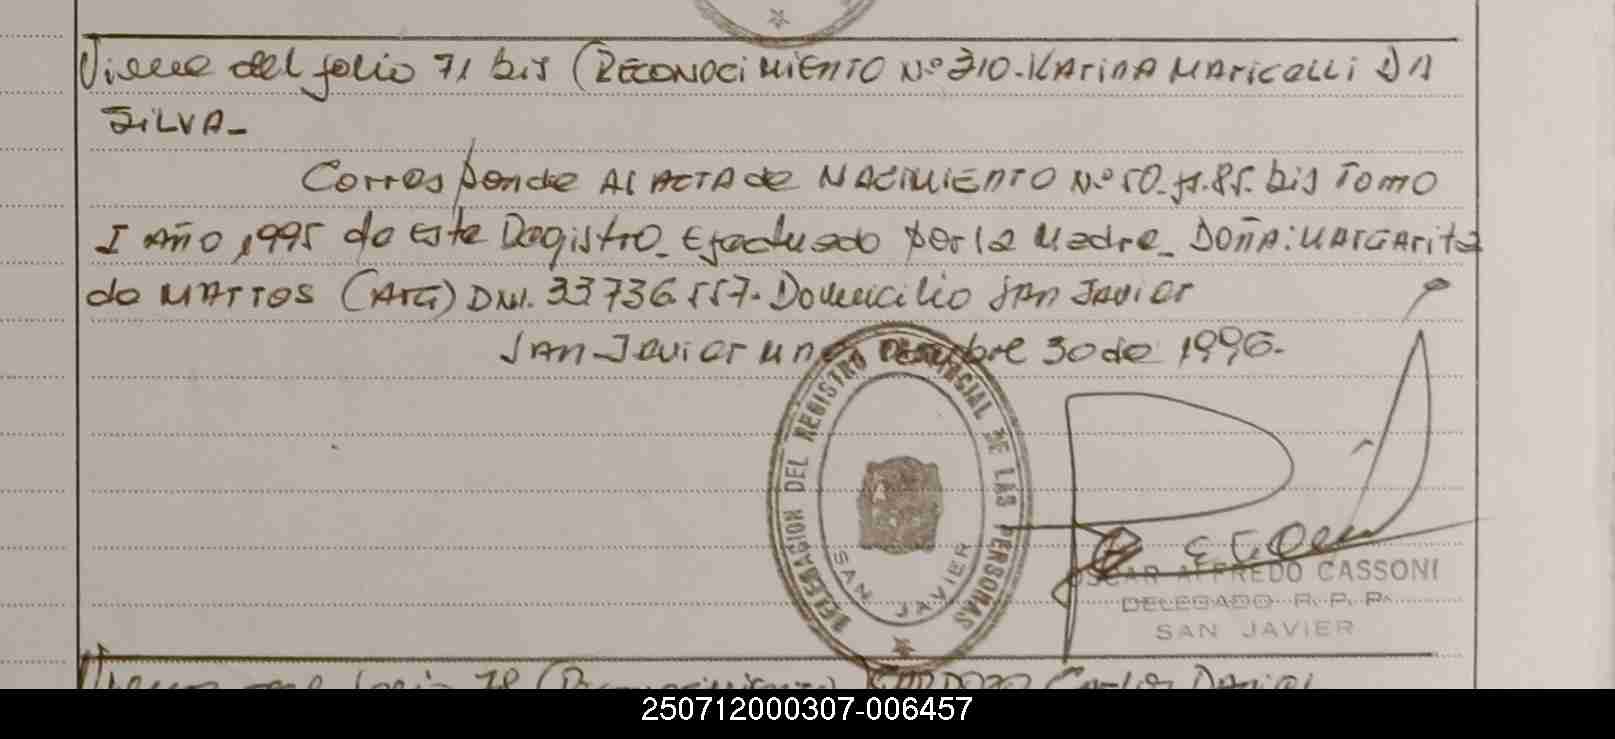 Viene del folio 71 bis (RECONOCIMIENTO Nº 310. KARINA MARICELLI DA
SILVA_
Corresponde Al ACTA de NACIMIENTO Nº 50. fº. 85. bis Tomo
I Año 1995 de este Registro_ Efectuado por la Madre_ DOÑA: MARGARITA
de MATTOS (ARG) DNI. 33736557. Domicilio SAN JAVIER
SAN JAVIER 30 de 1996.
DELEGACION DEL REGISTRO PROVINCIAL DE LAS PERSONAS
SAN JAVIER
OSCAR ALFREDO CASSONI
DELEGADO R. P. P.
SAN JAVIER
Carlos Daniel
250712000307-006457